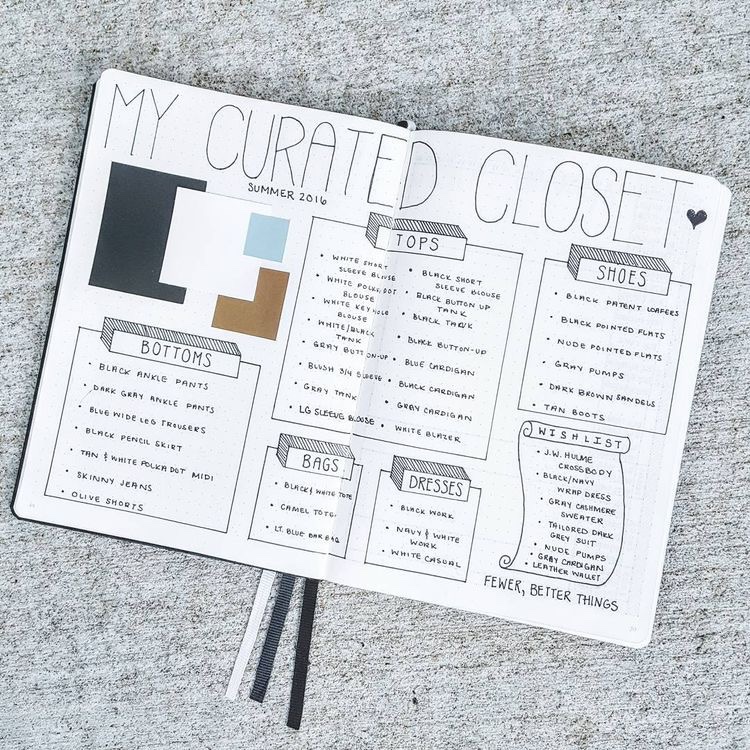 MY CURATED CLOSET
SUMMER 2016
BOTTOMS
• BLACK ANKLE PANTS
• DARK GRAY ANKLE PANTS
• BLUE WIDE LEG TROUSERS
• BLACK PENCIL SKIRT
• TAN & WHITE POLKA DOT MIDI
• SKINNY JEANS
• OLIVE SHORTS
TOPS
• WHITE SHORT
SLEEVE BLOUSE
• WHITE POLKA DOT
BLOUSE
• WHITE KEYHOLE
BLOUSE
• WHITE/BLACK
TANK
• GRAY BUTTON-UP
• BLUSH 3/4 SLEEVE
• GRAY TANK
• LG SLEEVE BLOOSE
• BLACK SHORT
SLEEVE BLOUSE
• BLACK BUTTON UP
TANK
• BLACK TANK
• BLACK BUTTON-UP
• BLUE CARDIGAN
• BLACK CARDIGAN
• GRAY CARDIGAN
• WHITE BLAZER
BAGS
• BLACK & WHITE TOTE
• CAMEL TOTE
• LT. BLUE BAR BAG
DRESSES
• BLACK WORK
• NAVY & WHITE
WORK
• WHITE CASUAL
SHOES
• BLACK PATENT LOAFERS
• BLACK POINTED FLATS
• NUDE POINTED FLATS
• GRAY PUMPS
• DARK BROWN SANDELS
• TAN BOOTS
WISHLIST
• J.W. HULME
CROSSBODY
• BLACK/NAVY
WRAP DRESS
• GRAY CASHMERE
SWEATER
• TAILORED DARK
GREY SUIT
• NUDE PUMPS
• GRAY CARDIGAN
• LEATHER WALLET
FEWER, BETTER THINGS